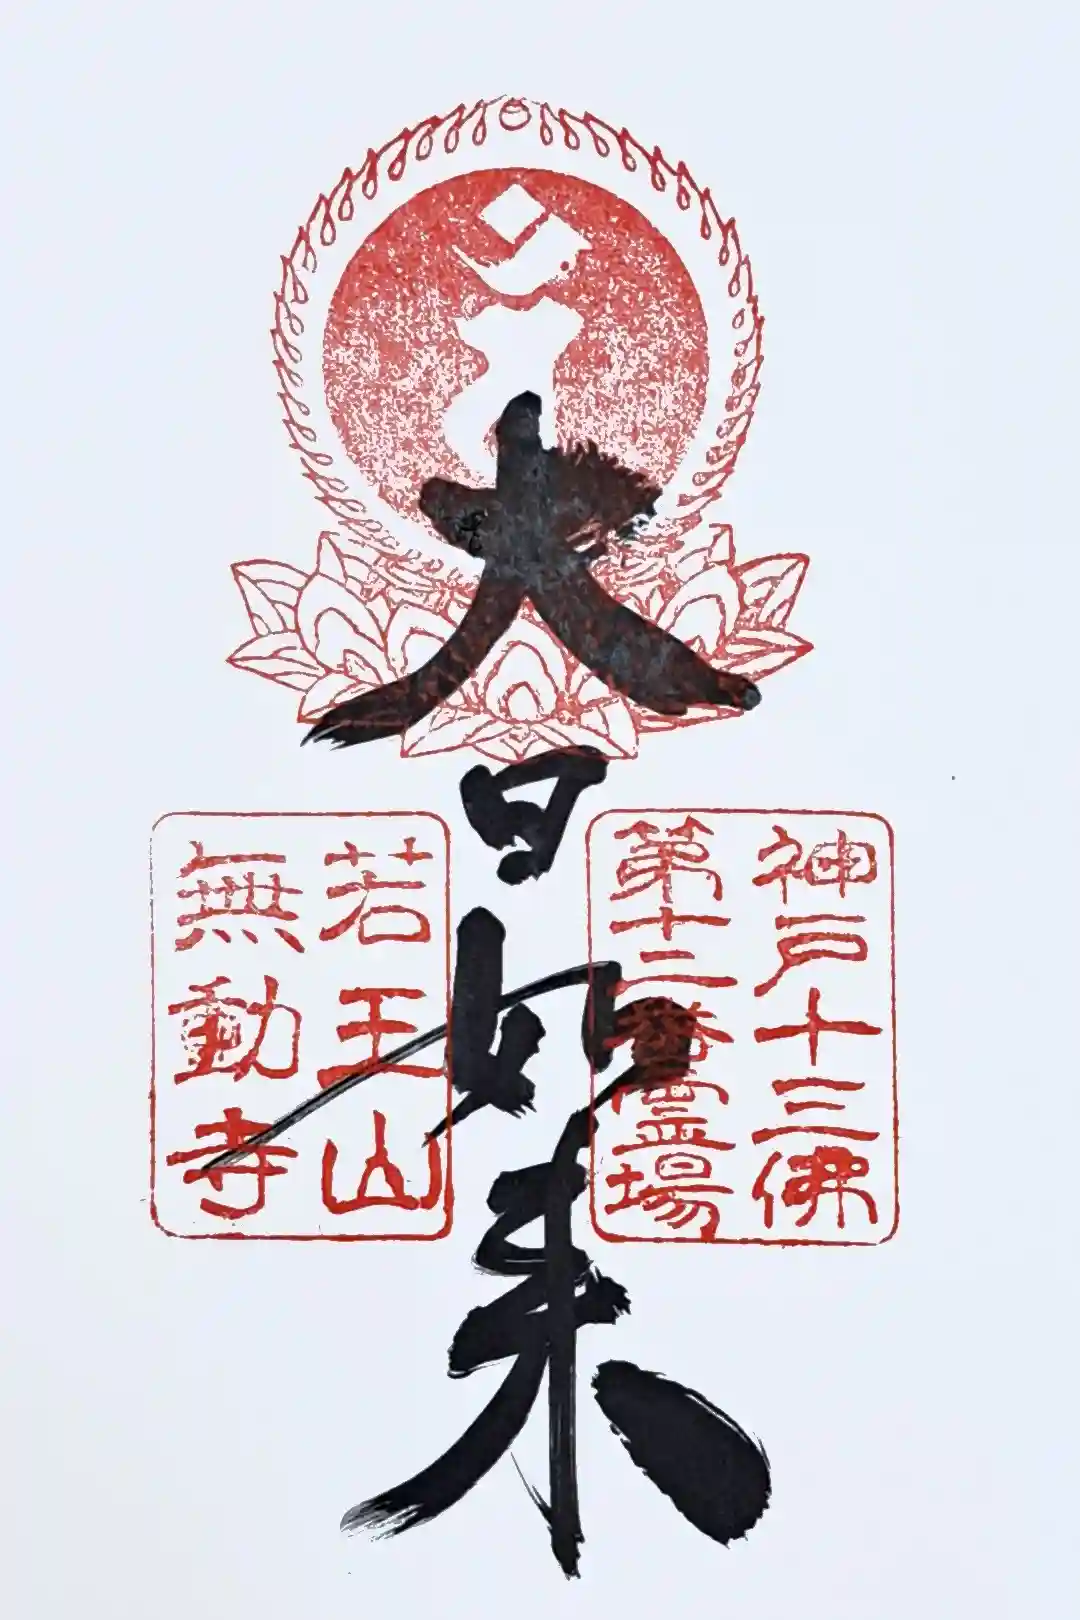 大日如来
神戸十三佛
第十二番霊場
若王山
無動寺